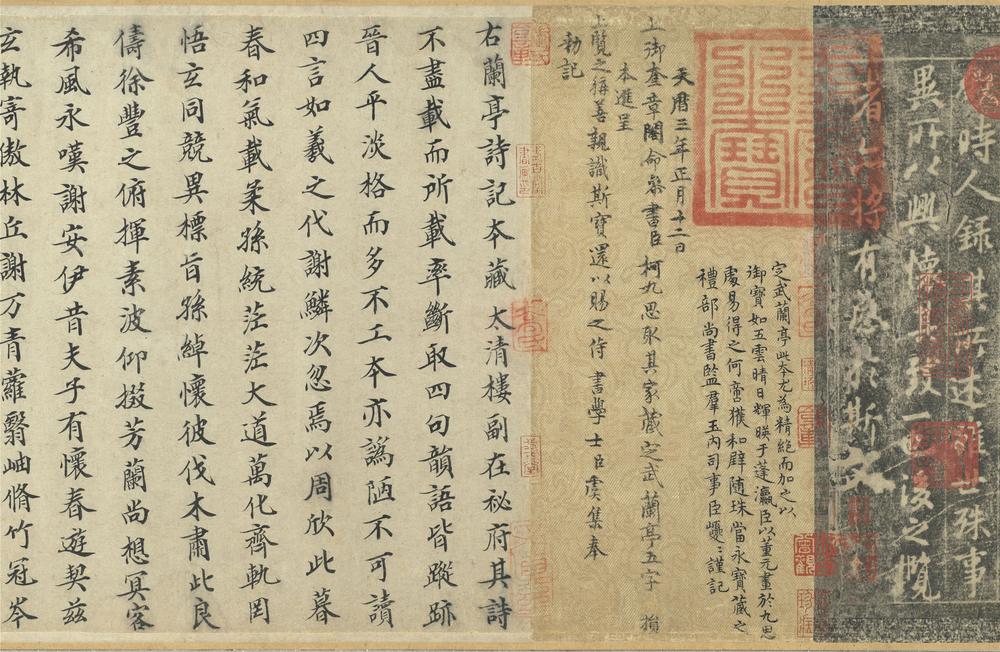 時人錄其所述雖世殊事
異所以興懷其致一也後之
者亦將有感於斯文
定武蘭亭此本尤為精絕而加之以
御寶如五雲晴日輝暎于蓬瀛臣以董元畫於九思
處易得之何啻獲和璧隨珠當永寶藏之
禮部尚書監羣玉內司事臣巙巙謹記
天曆三年正月十二日
上御奎章閣命參書臣柯九思取其家藏定武蘭亭五字損
本進呈
上覽之稱善親識斯寶還以賜之侍書學士臣虞集奉
勑記
右蘭亭詩記本藏太清樓副在祕府其詩
不盡載而所載率斷取四句韻語皆蹤跡
晉人平淡格而多不工本亦譌陋不可讀
四言如羲之代謝鱗次忽焉以周欣此暮
春和氣載柔孫統茫茫大道萬化齊軌罔
悟玄同競異標旨孫綽懷彼伐木肅此良
儔徐豐之俯揮素波仰掇芳蘭尚想冥客
希風永嘆謝安伊昔夫子有懷春遊契茲
玄執寄傲林丘謝万青蘿翳岫脩竹冠岑